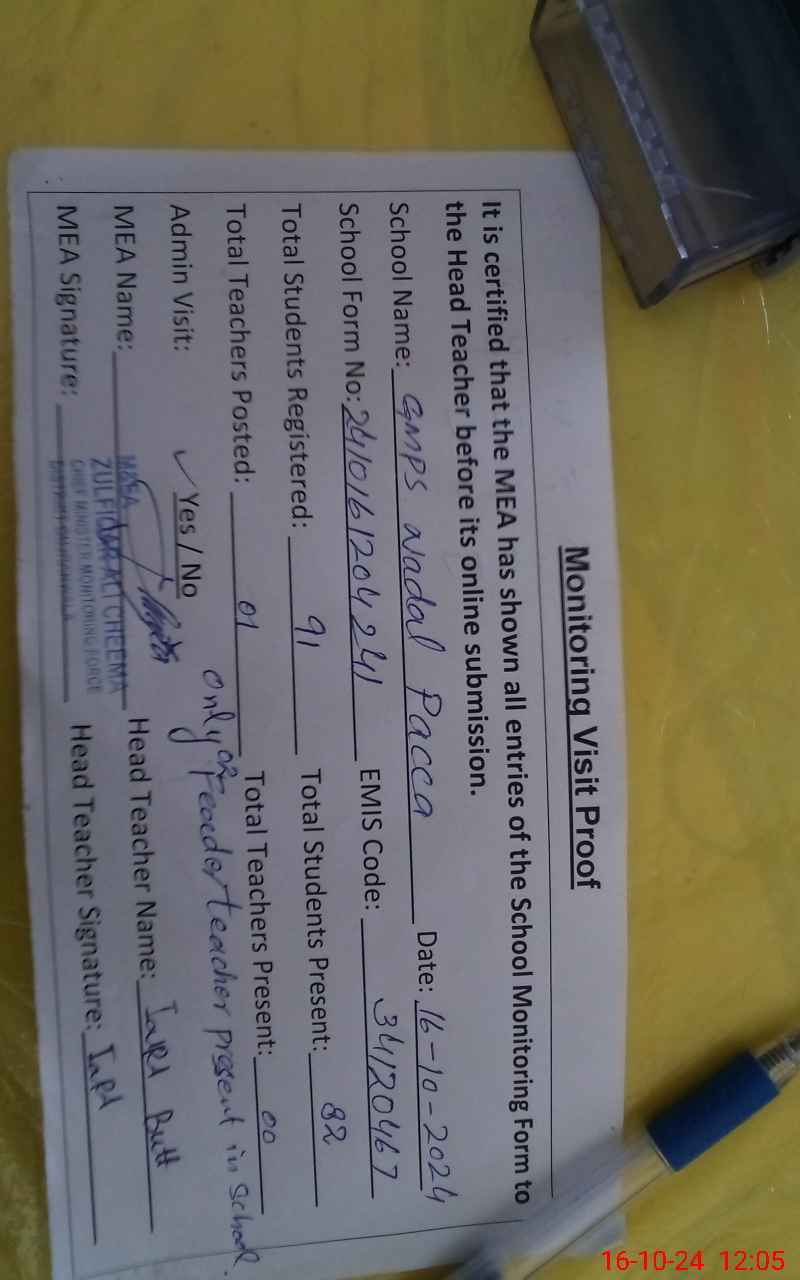 Monitoring Visit Proof
It is certified that the MEA has shown all entries of the School Monitoring Form to
the Head Teacher before its online submission.
School Name: GMPS Nadal Pacca Date: 16-10-2024
School Form No: 2410161204241 EMIS Code: 34120467
Total Students Registered: 91 Total Students Present: 82
Total Teachers Posted: 01 Total Teachers Present: 00
only 02 teacher present in school.
Admin Visit: ✓ Yes / No
MEA Name: Head Teacher Name: Butt
M&EA
ZULFIQAR ALI CHEEMA
CHIEF MINISTER MONITORING FORCE
DISTRICT
MEA Signature: Head Teacher Signature:
16-10-24 12:05